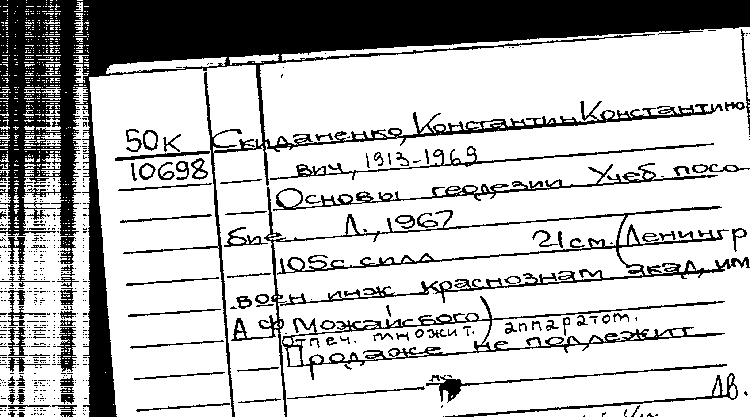 50к Скиданенко, Константин Константино
10698 вич, 1913-1969
Основы геодезии. Учеб. посо
бие. Л., 1967
105с. силл 21 см. (Ленингр
воен инж краснознам акад, им
А Ф Можайского)
отпеч. множит. аппаратом.
Продаже не подлежит